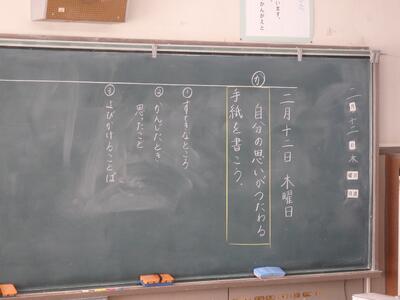 二月十二日 木曜日
か
自分の思いがつたわる
手紙を書こう。
① すてきなところ
② かんじたとき
思ったこと
③ よびかけることば
二月十二日木曜日
日直
います。
かんがえと